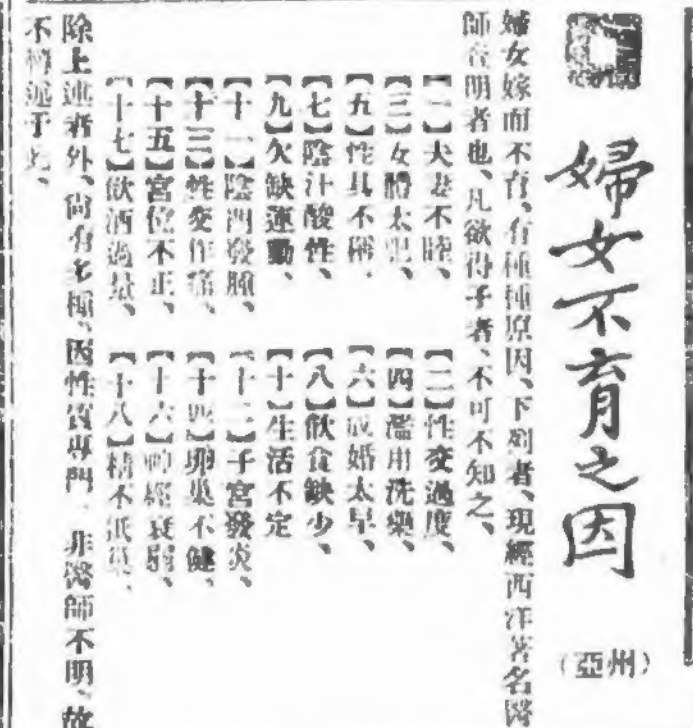 婦女不育之因
（亞州）
婦女嫁而不育、有種種原因、下列者、現經西洋著名醫
師查明者也、凡欲得子者、不可不知之、
【一】夫妻不睦、
【二】性交過度、
【三】女體太肥、
【四】濫用洗藥、
【五】性具不稱、
【六】成婚太早、
【七】陰汁酸性、
【八】飲食缺少、
【九】欠缺運動、
【十】生活不定
【十一】陰門發腫、
【十二】子宮發炎、
【十三】性交作痛、
【十四】卵巢不健、
【十五】宮位不正、
【十六】神經衰弱、
【十七】飲酒過量、
【十八】精不
除上述者外、尚有多種、因性質專門、非醫師不明、故
不備述于此、